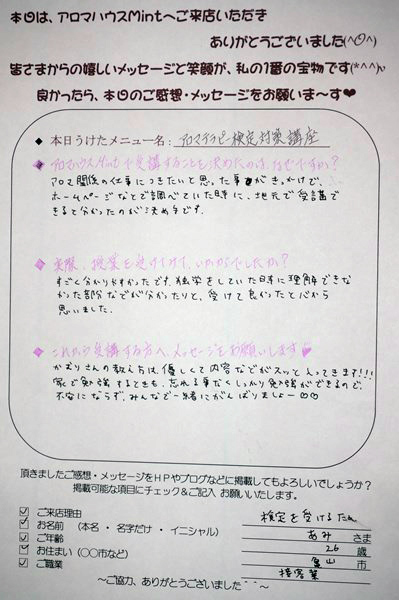 本日は、アロマハウスMintへご来店いただき
ありがとうございました(^O^)
皆さまからの嬉しいメッセージと笑顔が、私の1番の宝物です(*^^*)v
良かったら、本日のご感想・メッセージをお願いま～す♥
◆ 本日うけたメニュー名： アロマテラピー検定対策講座
◆ アロマハウスMintで受講することを決めたのは、なぜですか？
アロマ関係の仕事につきたいと思った事がきっかけで、
ホームページなどで調べていた時に、地元で受講で
きると分かったのが決め手です。
◆ 実際、授業を受けてみて、いかがでしたか？
すごく分かりやすかったです。独学をしていた時に理解できな
かった部分などが分かったりと、受けて良かったと心から
思いました。
◆ これから受講する方へ、メッセージをお願いします♥
さんの教え方は、優しくて内容などがスッと入ってきます!!!
家で勉強するときも、忘れる事なくしっかり勉強ができるので、
不安にならず、みんなで一緒にがんばりましょー♡♡
頂きましたご感想・メッセージをＨＰやブログなどに掲載してもよろしいでしょうか？
掲載可能な項目にチェック＆ご記入 お願いいたします。
☑ ご来店理由 検定を受けるため
☑ お名前 （本名 ・ 名字だけ ・ イニシャル） あみ さま
☑ ご年齢 26 歳
☑ お住まい（〇〇市など） 亀山 市
☑ ご職業 接客業
～ご協力、ありがとうございました～